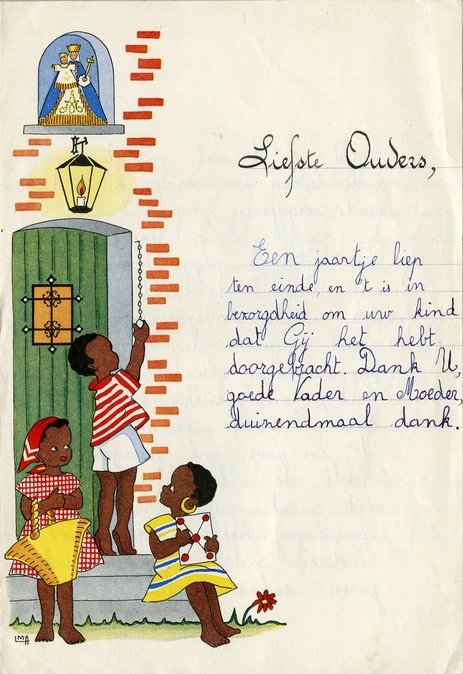 Liefste Ouders,
Een jaartje liep
ten einde, en 't is in
bezorgdheid om uw kind
dat Gij het hebt
doorgebracht. Dank U,
goede Vader en Moeder,
duizendmaal dank.